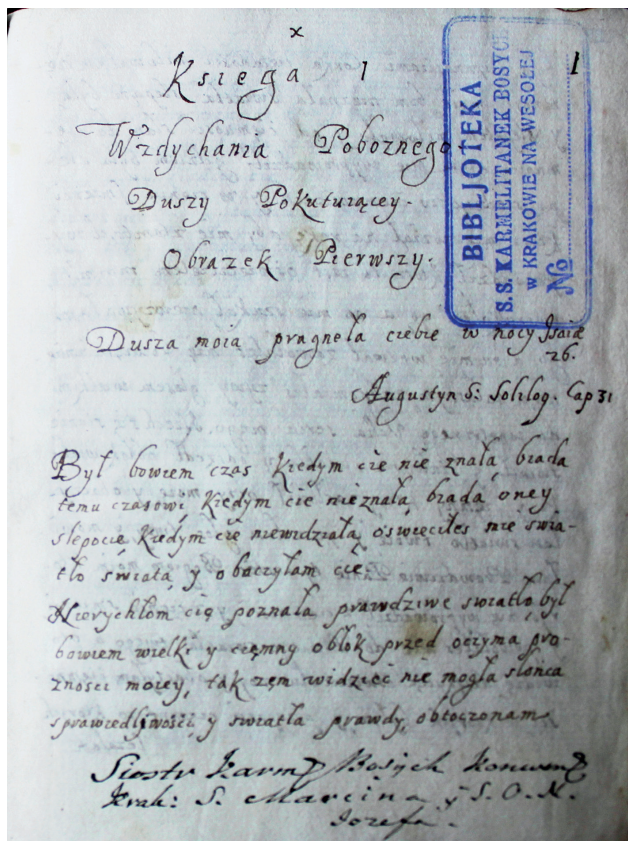 x
Księga 1
1
Wzdychania Pobożnego
Duszy Pokutuiącey.
Obrazek Pierwszy.
BIBLJOTEKA
S.S. KARMELITANEK BOSYCH
w KRAKOWIE NA WESOŁEJ
No
Dusza moia pragnęła ciebie w nocy Jsaiæ
26.
Augustyn S: Solilog. Cap 31
Był bowiem czas kiedym cie nie znała, biada
temu czasowi kiedym cie nieznała, biada oney
slepocie kiedym cie niewidziała, oswieciłes mie swia-
tło swiata y obaczyłam cie.
Nierychłom cię poznała prawdziwe swiatło, był
bowiem wielki y ciemny obłok przed oczyma pro-
znosci moiey, tak zem widziec nie mogła słonca
sprawiedliwosci y swiatła prawdy, obtoczonam
Siostr Karm Bosych Konwen
Krak: S. Marcina y S. O. N.
Jozefa.